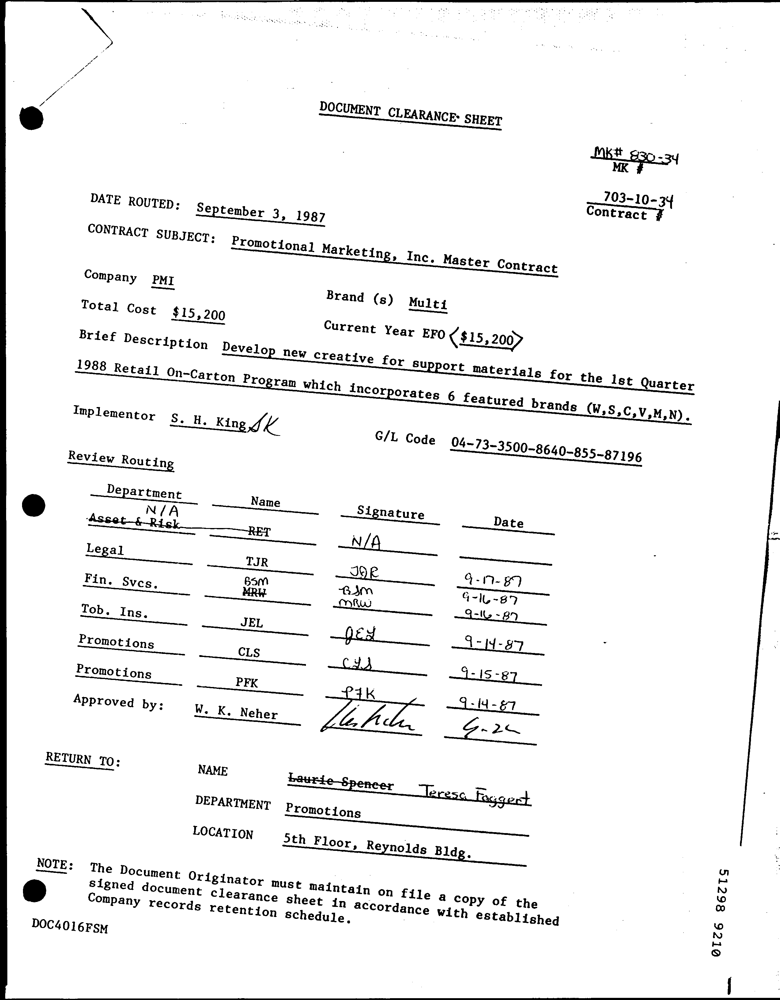 DOCUMENT CLEARANCE SHEET
MK# 830-34
MK #
703-10-34
Contract #
DATE ROUTED: September 3, 1987
CONTRACT SUBJECT: Promotional Marketing, Inc. Master Contract
Company PMI
Brand (s) Multi
Total Cost $15,200
Current Year EFO <$15,200>
Brief Description Develop new creative for support materials for the 1st Quarter
1988 Retail On-Carton Program which incorporates 6 featured brands (W,S,C,V,M,N).
Implementor S. H. King SK
G/L Code 04-73-3500-8640-855-87196
Review Routing
Department Name Signature Date
N/A
Asset & Risk RET N/A
Legal TJR JQR 9-17-87
Fin. Svcs. BSM BSM 9-16-87
MRW MRW 9-16-87
Tob. Ins. JEL JEL 9-14-87
Promotions CLS CLS 9-15-87
Promotions PFK PFK 9-14-87
Approved by: W. K. Neher 9-24
RETURN TO: NAME Laurie Spencer Teresa Faggert
DEPARTMENT Promotions
LOCATION 5th Floor, Reynolds Bldg.
NOTE: The Document Originator must maintain on file a copy of the
signed document clearance sheet in accordance with established
Company records retention schedule.
DOC4016FSM
51298 9210